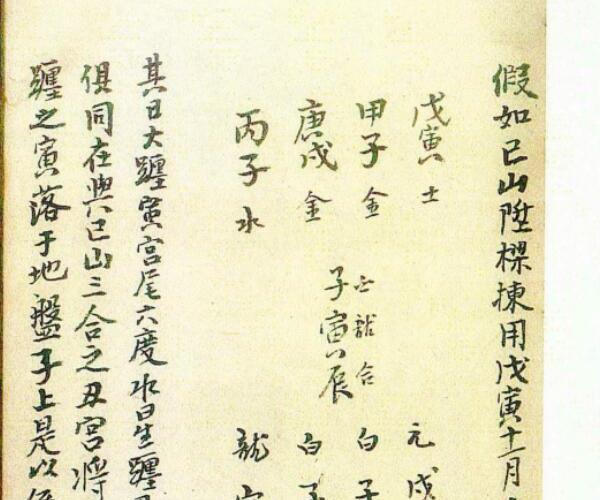 假如己山陞樑揀用戊寅十一月
戊寅 土 元 戌
甲子 金 龍合 白 子
庚戌 金 子寅辰 白 子
丙子 水 龍
其日大躔寅宮尾六度水日生躔
俱同在與己山三合之丑宮將
躔之寅落于地盤子上是以